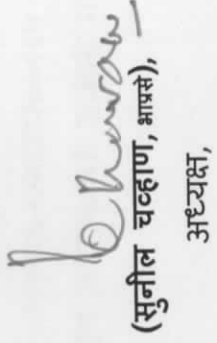 (सुनील चव्हाण, भाप्रसे),
अध्यक्ष,